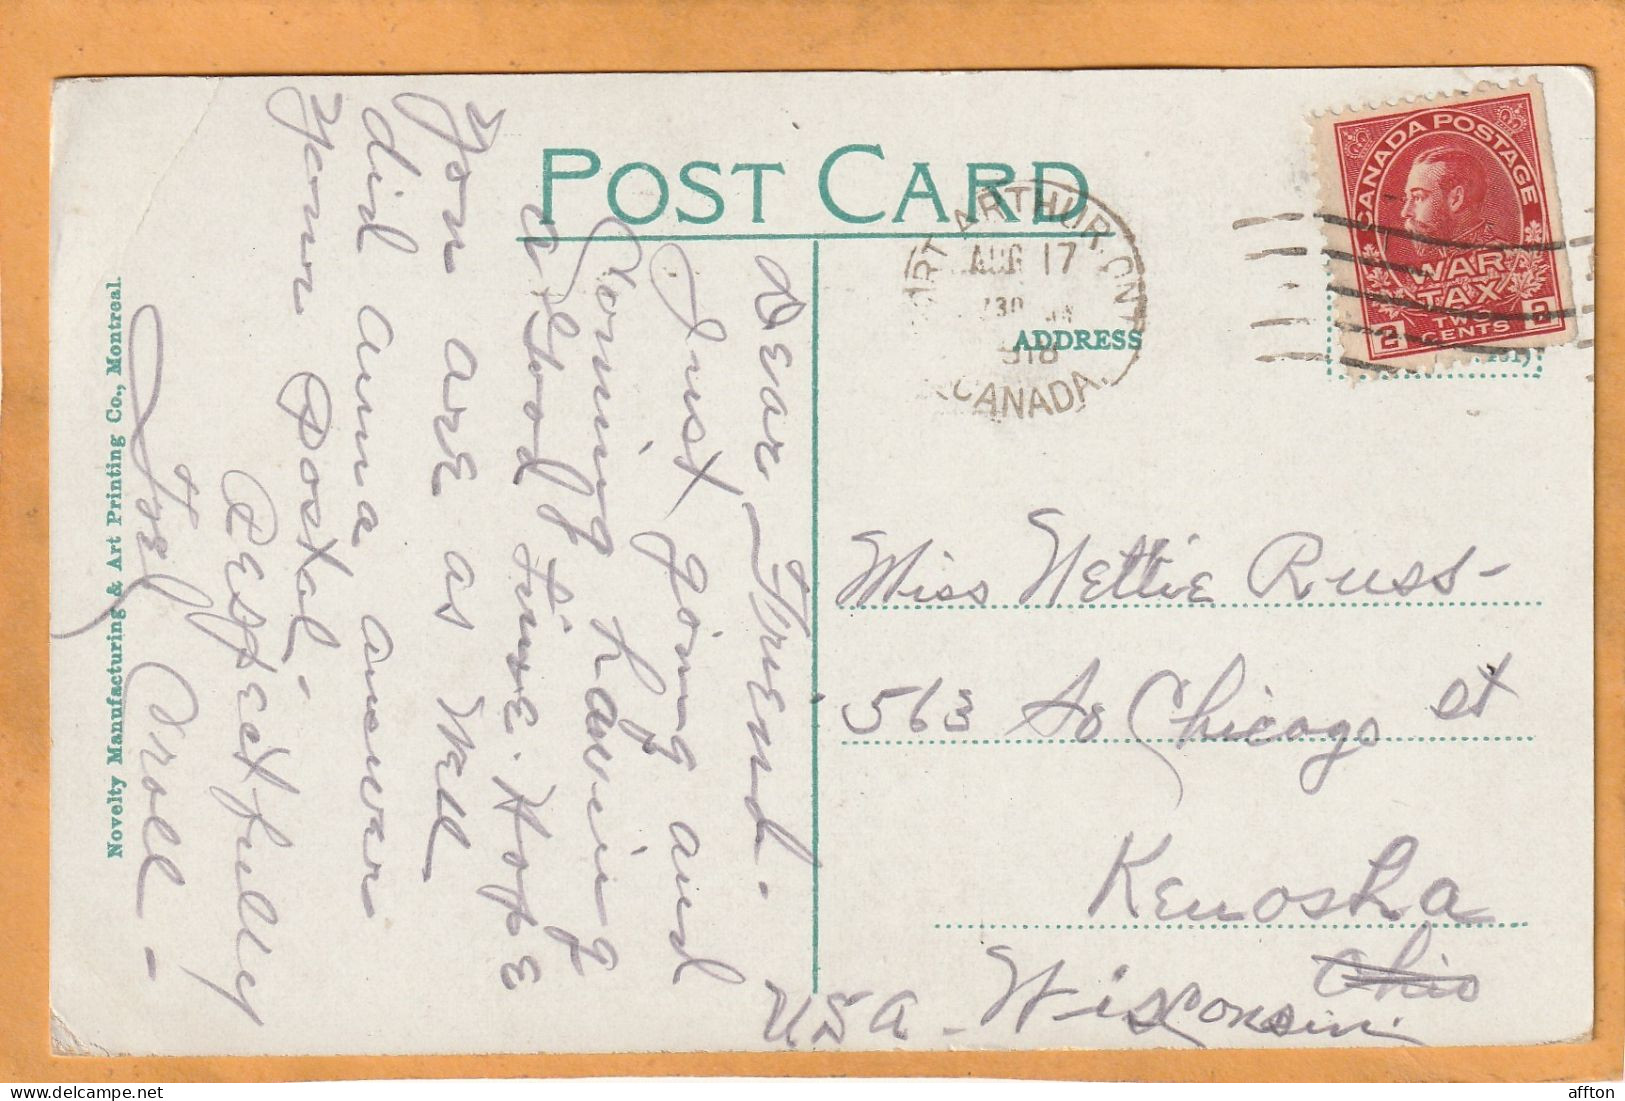 POST CARD
ADDRESS
PORT ARTHUR. ONT
AUG 17
730
1918
CANADA.
CANADA POSTAGE
WAR
TAX
2 TWO CENTS 2
Dear Friend.
Just going and
Coming having
a Good time. Hope
You are as Well
did Anna answer
your Postal.
Respectfully
Novelty Manufacturing & Art Printing Co., Montreal.
Miss Nettie Russ-
563 So Chicago St
Kenosha
Ohio
U.S.A - Wisconsin.
affton